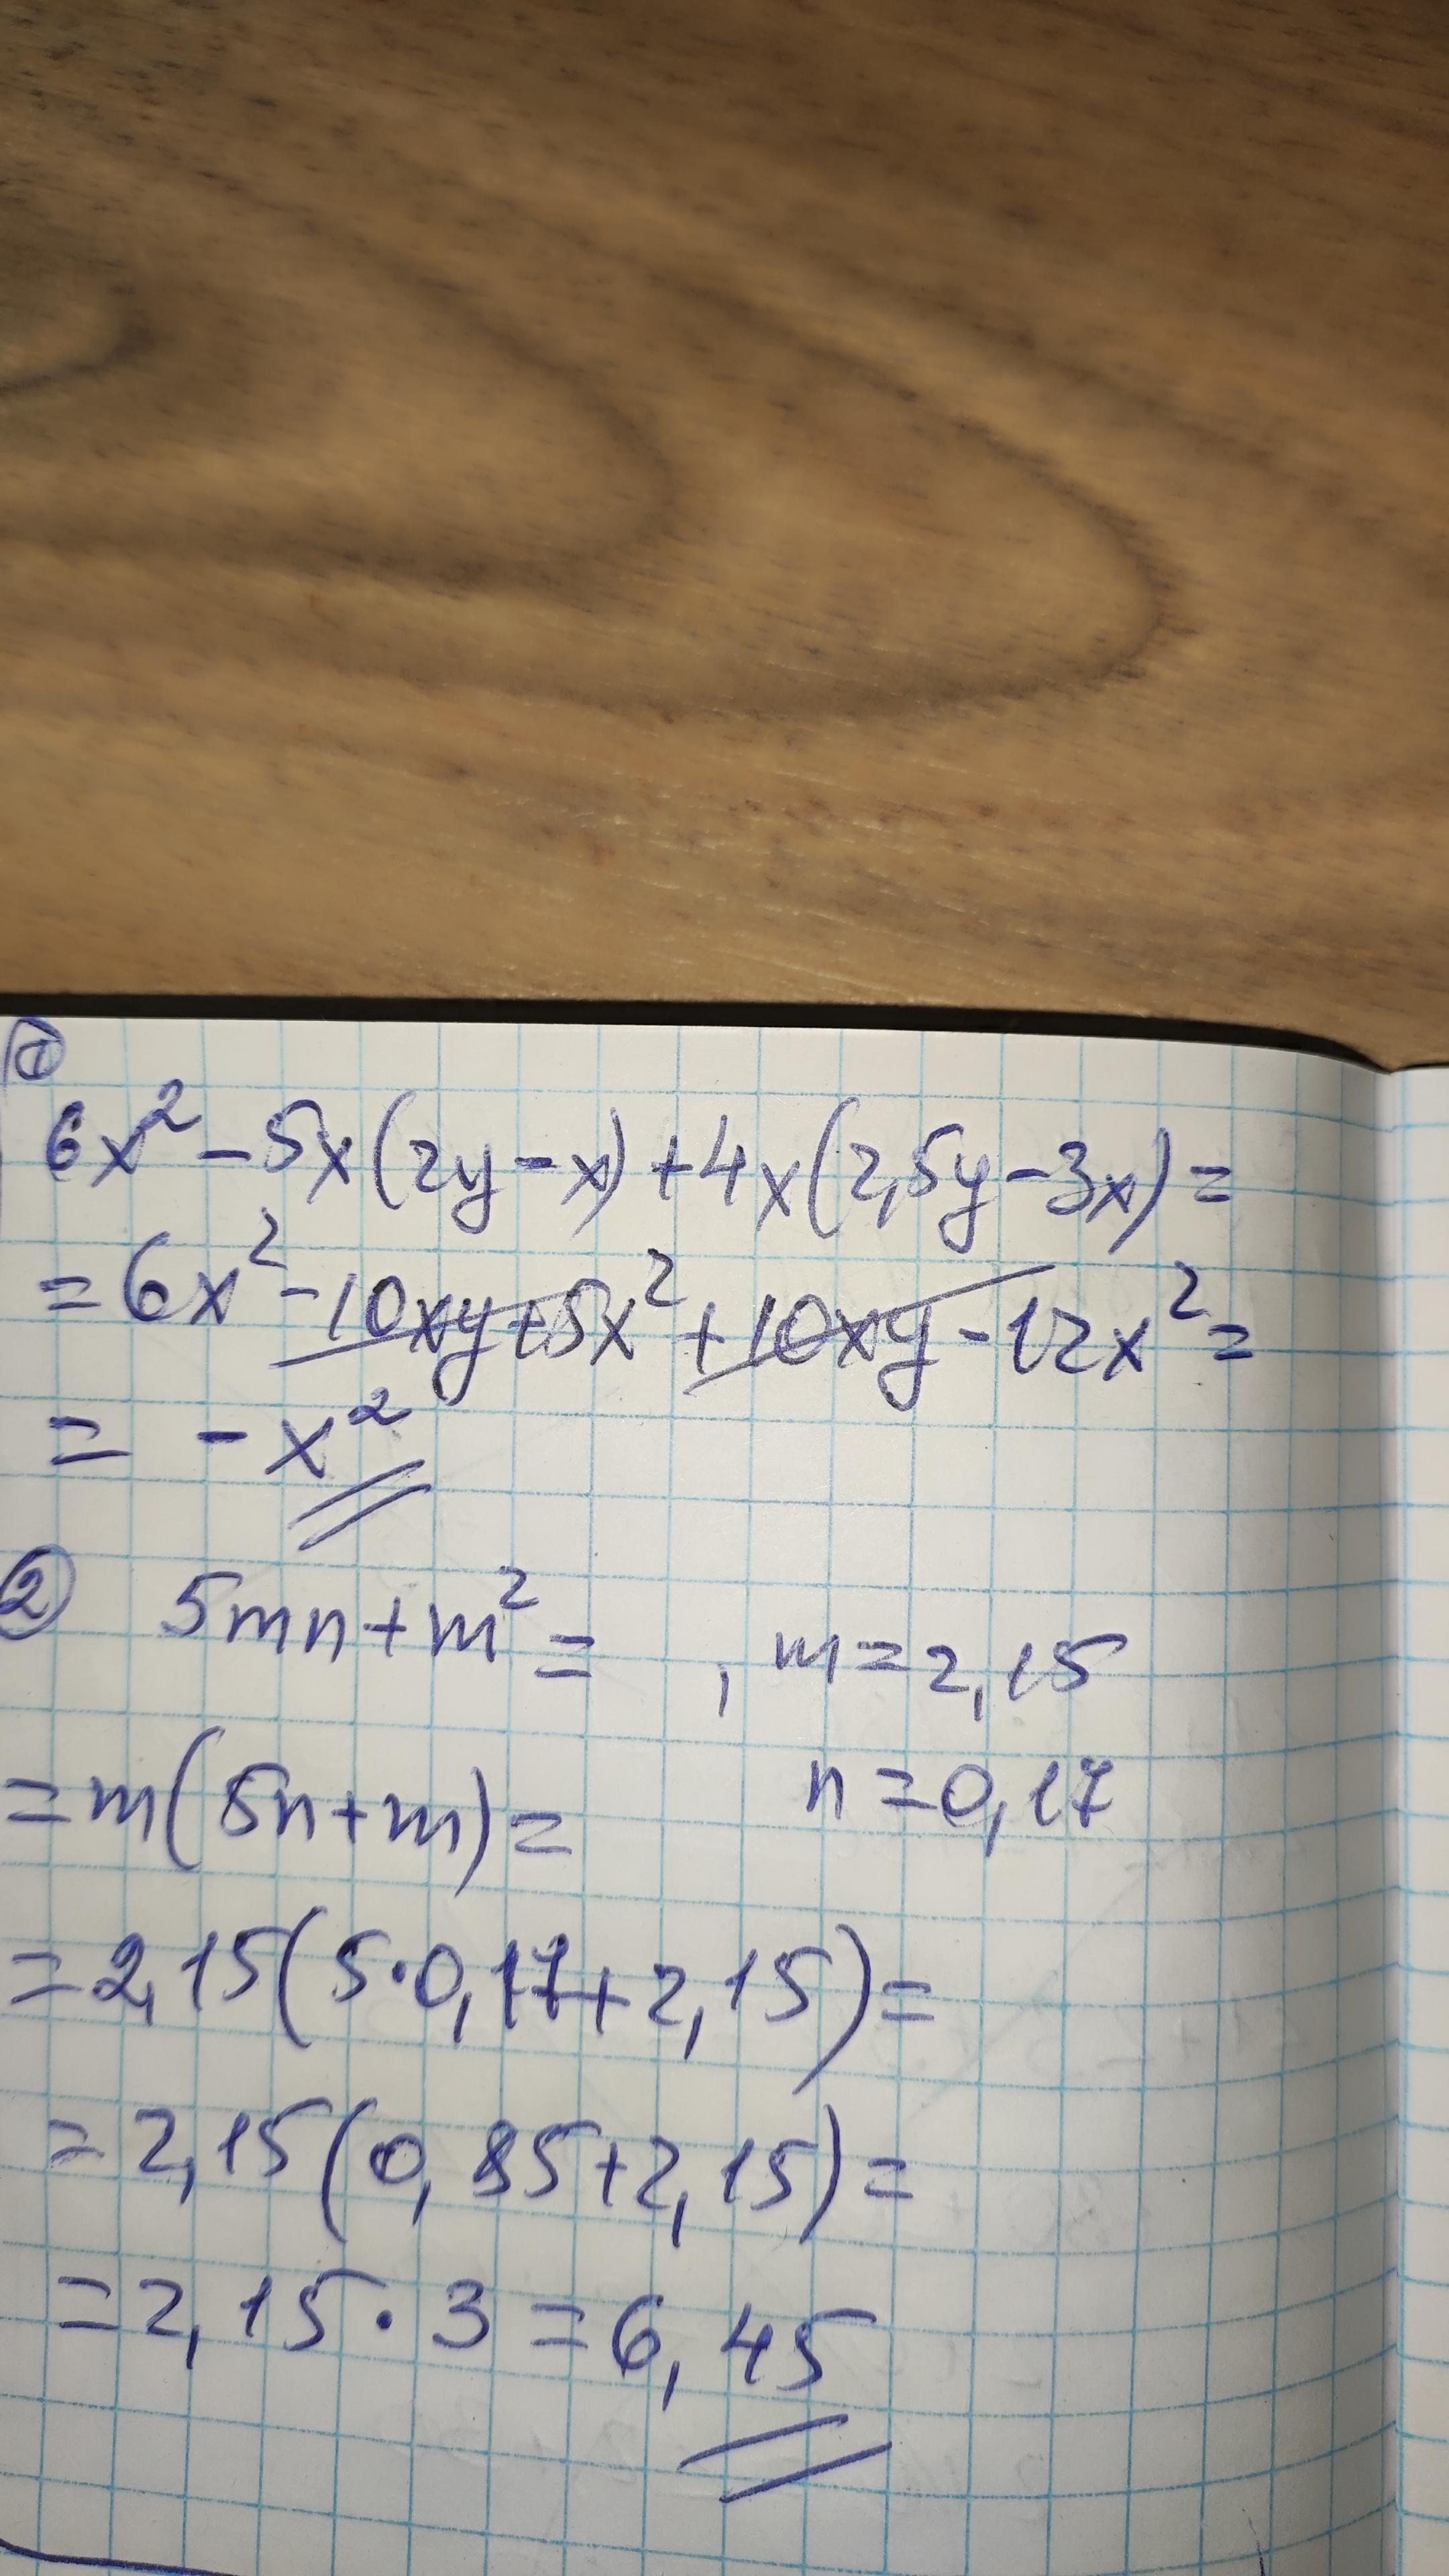 ①
6x² - 5x(2y - x) + 4x(2,5y - 3x) =
= 6x² - 10xy + 5x² + 10xy - 12x² =
= - x²
② 5mn + m² = , m = 2,15
= m(5n + m) = n = 0,17
= 2,15(5·0,17 + 2,15) =
= 2,15(0,85 + 2,15) =
= 2,15 · 3 = 6,45